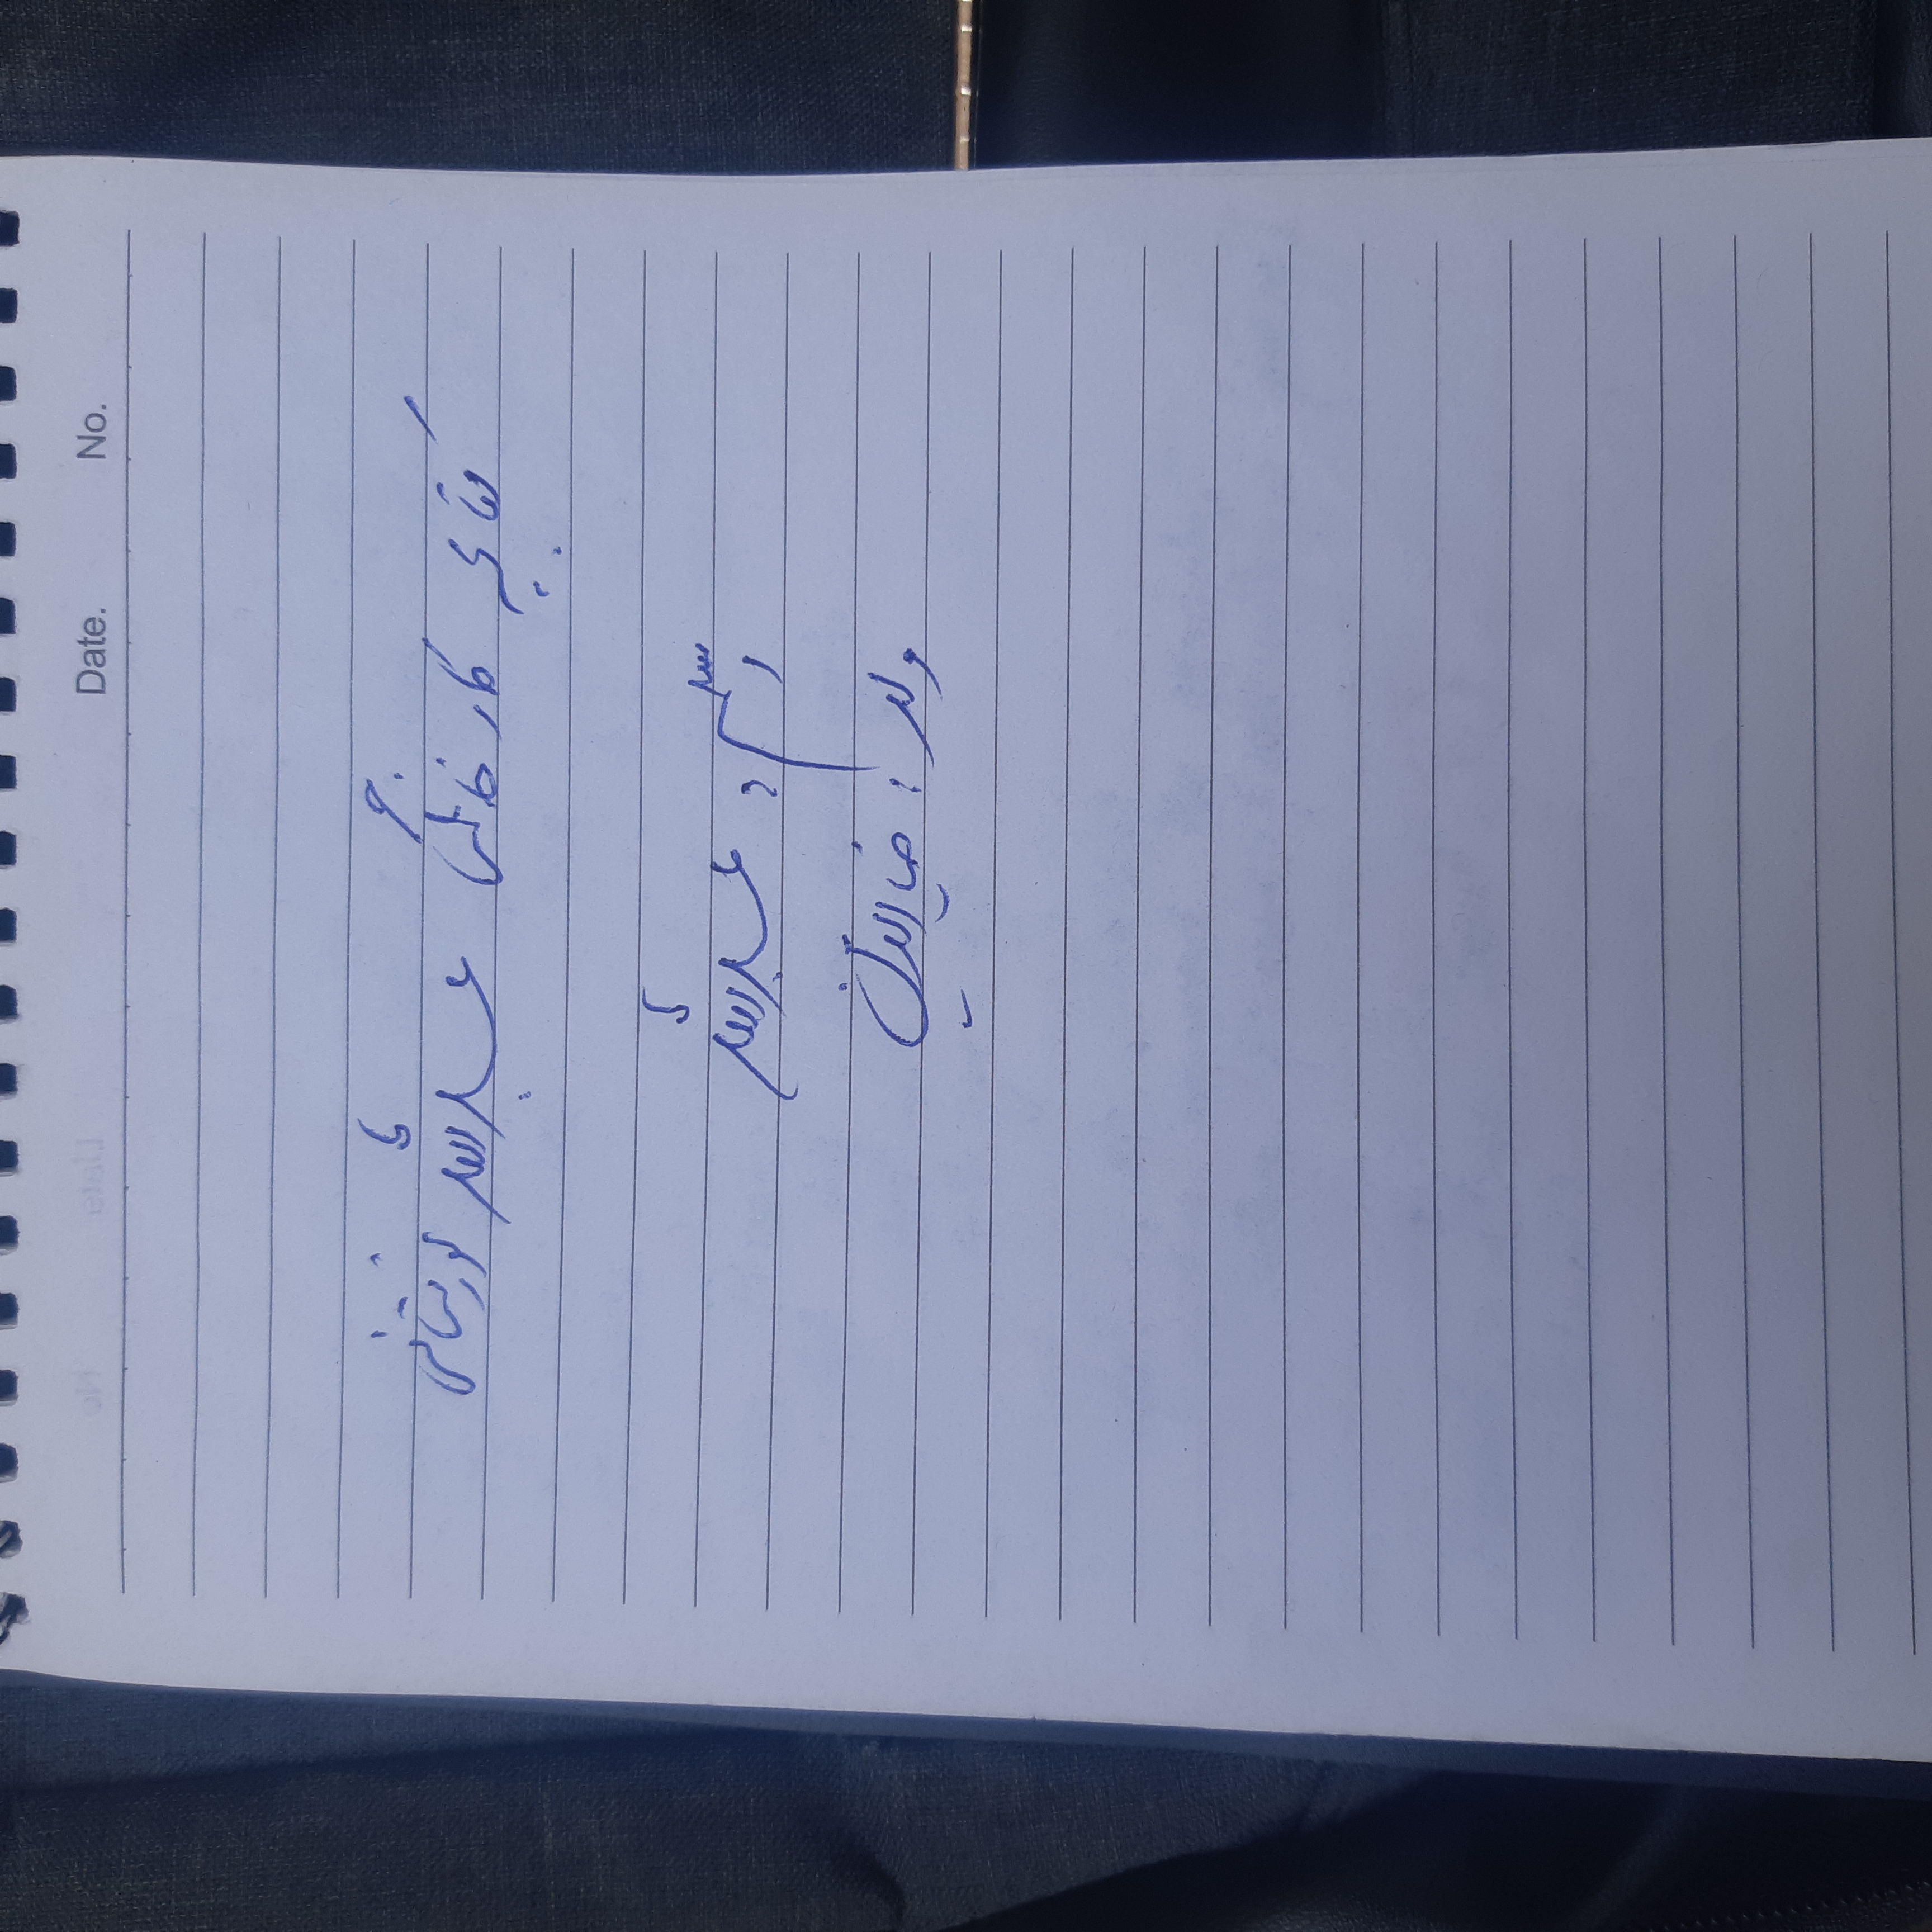 Date. No.
کتابچه کار خانگی عبدالله نورستانی
اسم : عبدالله
ولد : ضیاالدین